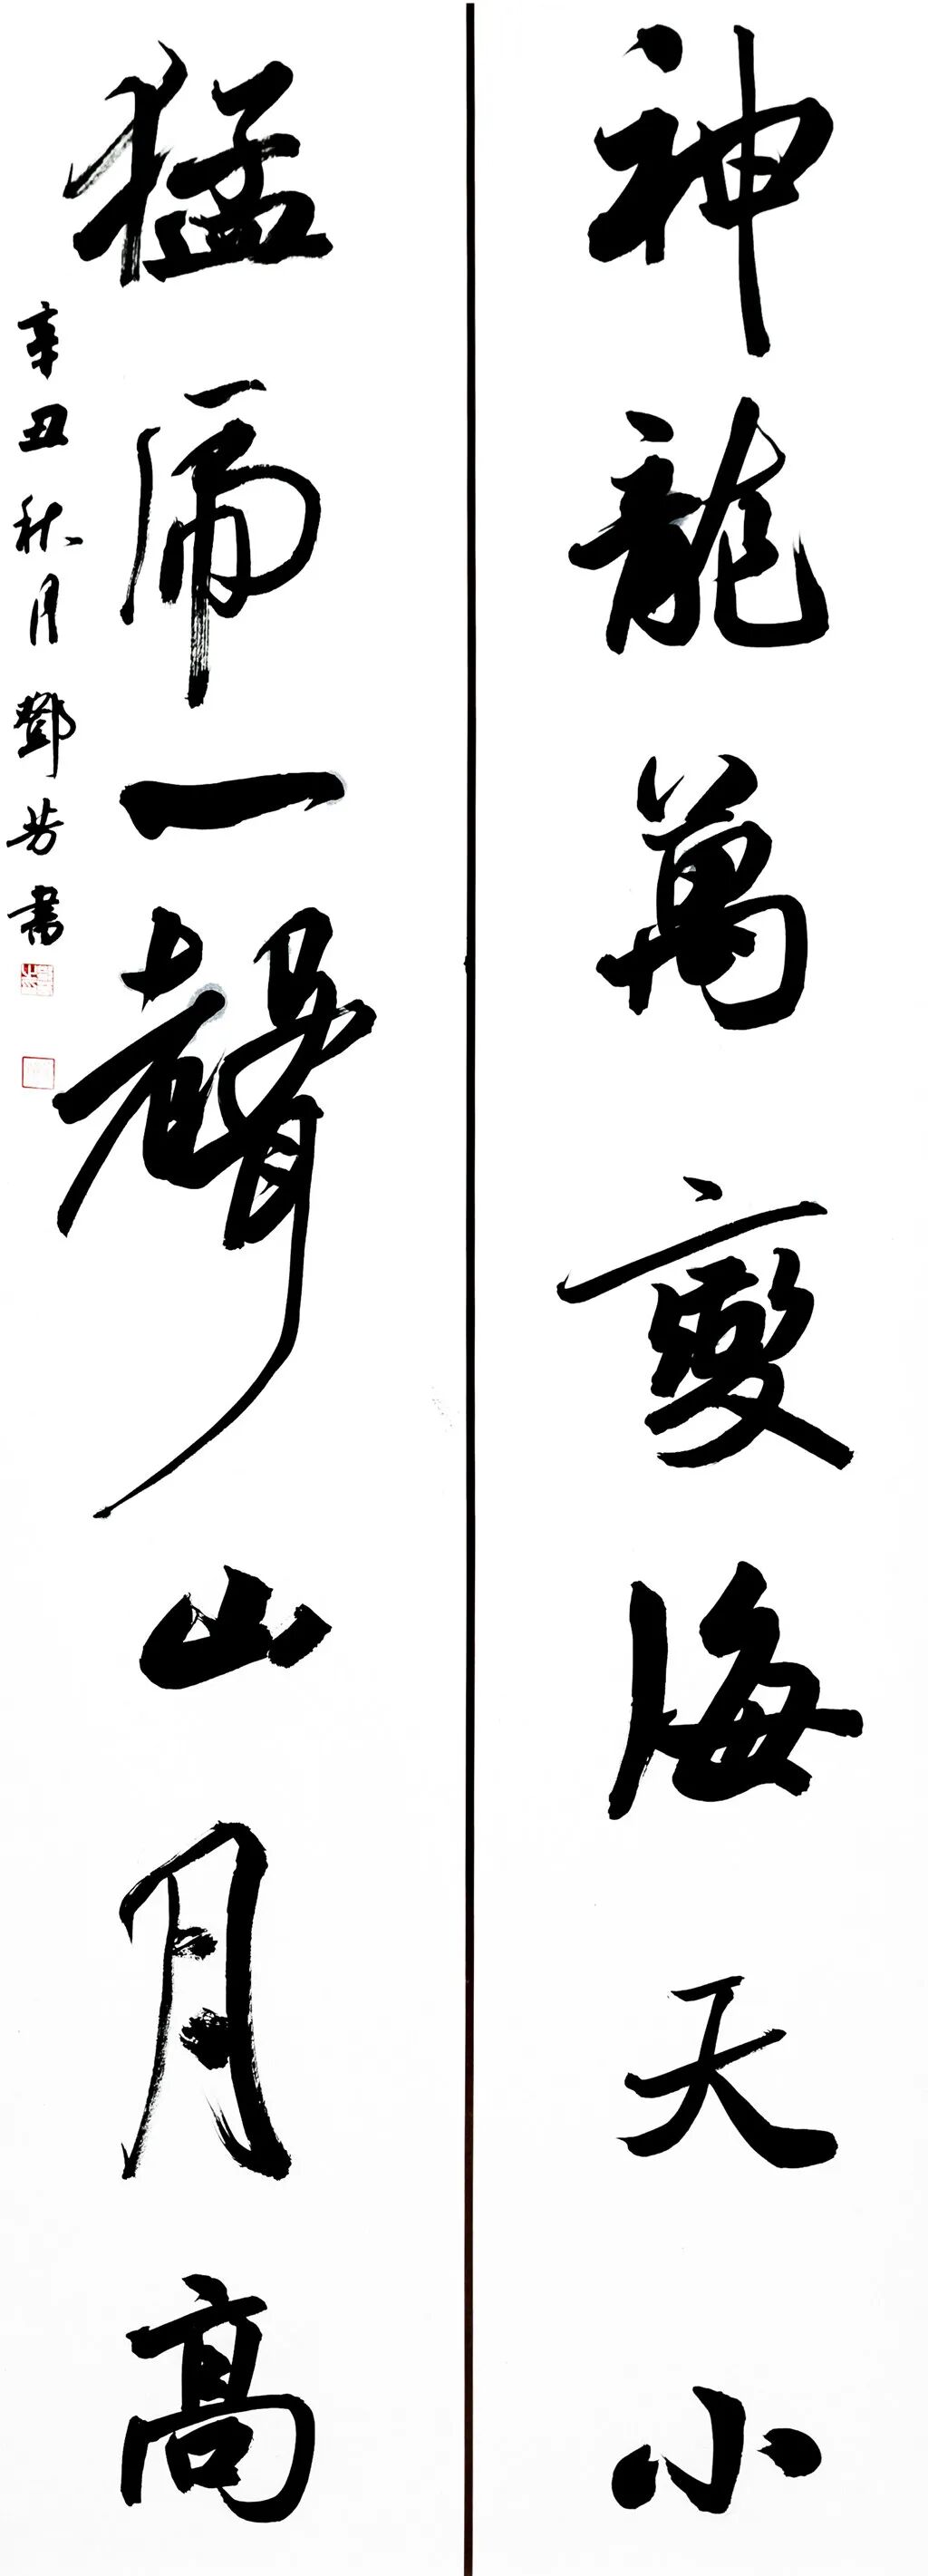 神龍萬變海天小
猛虎一聲山月高
辛丑秋月鄧芳書